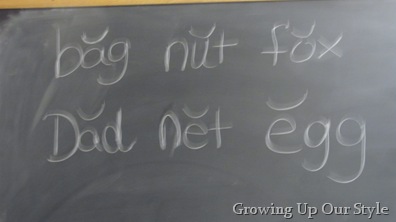 băg nŭt fŏx
Dăd nĕt ĕgg
Growing Up Our Style